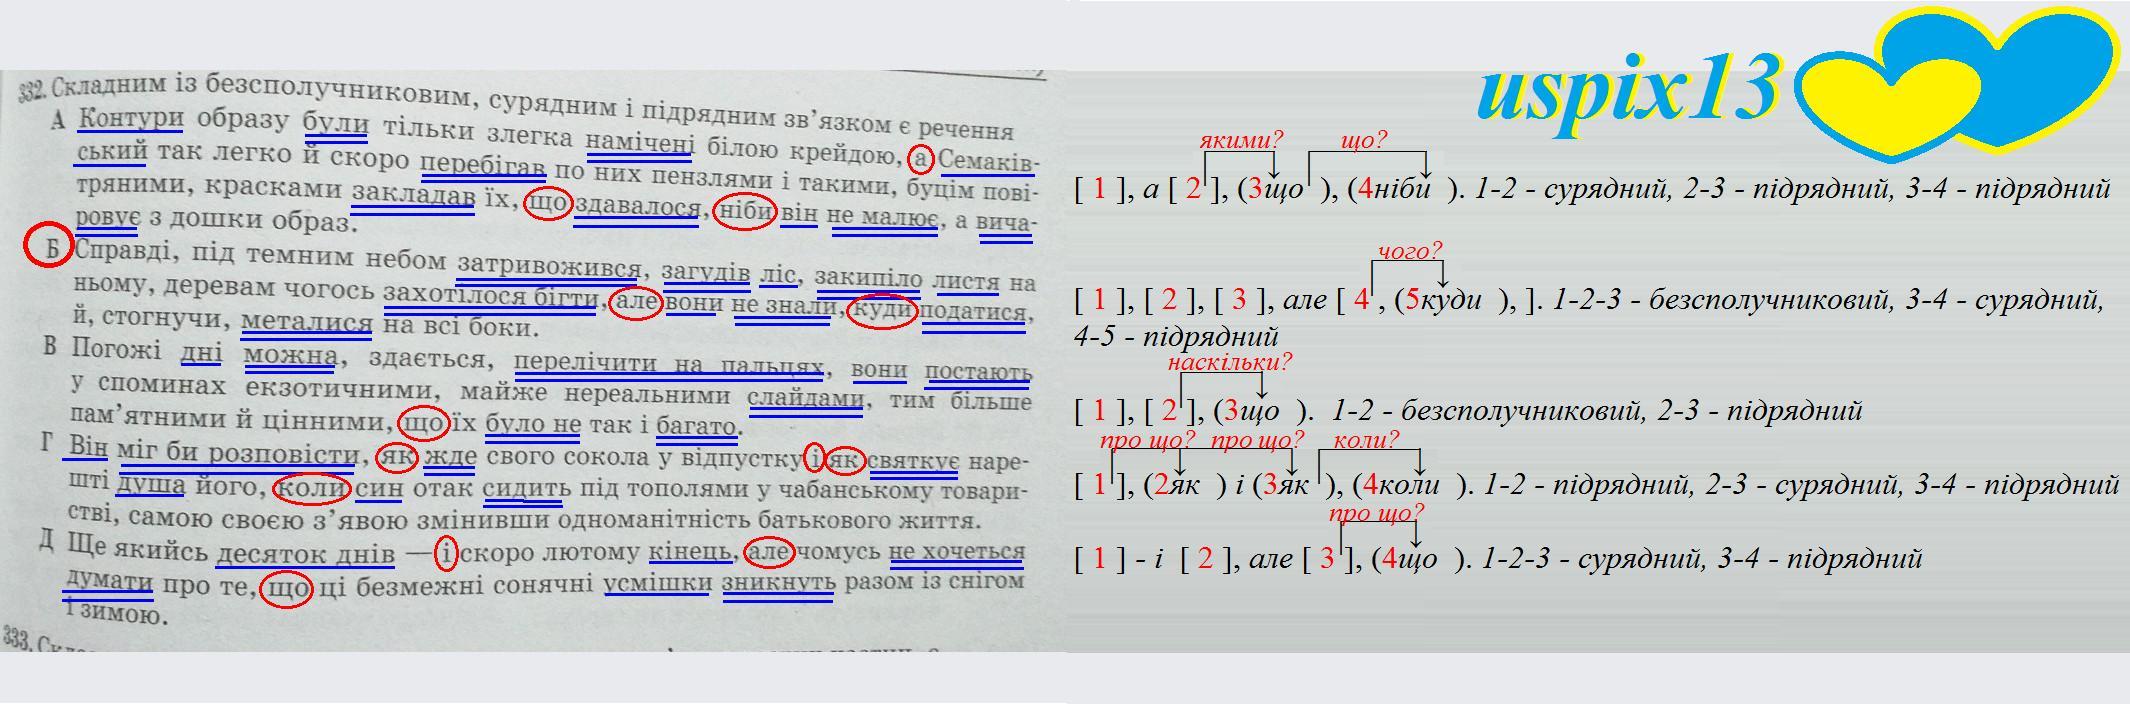 332. Складним із безсполучниковим, сурядним і підрядним зв’язком є речення
А Контури образу були тільки злегка намічені білою крейдою, а Семаків-
ський так легко й скоро перебігав по них пензлями і такими, буцім пові-
тряними, красками закладав їх, що здавалося, ніби він не малює, а вича-
ровує з дошки образ.
Б Справді, під темним небом затривожився, загудів ліс, закипіло листя на
ньому, деревам чогось захотілося бігти, але вони не знали, куди податися,
й, стогнучи, металися на всі боки.
В Погожі дні можна, здається, перелічити на пальцях, вони постають
у споминах екзотичними, майже нереальними слайдами, тим більше
пам’ятними й цінними, що їх було не так і багато.
Г Він міг би розповісти, як жде свого сокола у відпустку і як святкує наре-
шті душа його, коли син отак сидить під тополями у чабанському товари-
стві, самою своєю з’явою змінивши одноманітність батькового життя.
Д Ще якийсь десяток днів — і скоро лютому кінець, але чомусь не хочеться
думати про те, що ці безмежні сонячні усмішки зникнуть разом із снігом
і зимою.
333.
uspix13
якими? що?
[ 1 ], а [ 2 ], (3що ), (4ніби ). 1-2 - сурядний, 2-3 - підрядний, 3-4 - підрядний
чого?
[ 1 ], [ 2 ], [ 3 ], але [ 4 , (5куди ), ]. 1-2-3 - безсполучниковий, 3-4 - сурядний,
4-5 - підрядний
наскільки?
[ 1 ], [ 2 ], (3що ). 1-2 - безсполучниковий, 2-3 - підрядний
про що? про що? коли?
[ 1 ], (2як ) і (3як ), (4коли ). 1-2 - підрядний, 2-3 - сурядний, 3-4 - підрядний
про що?
[ 1 ] - і [ 2 ], але [ 3 ], (4що ). 1-2-3 - сурядний, 3-4 - підрядний